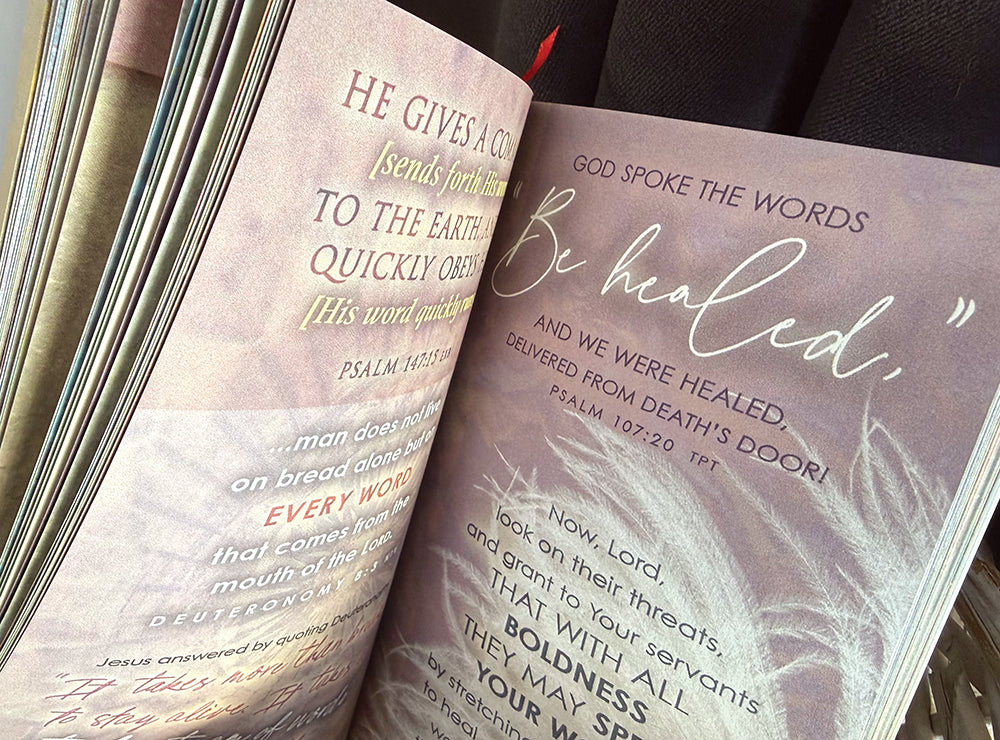 HE GIVES A
[sends forth His
TO THE EARTH,
QUICKLY OBEYS
[His word quickly
PSALM 147:15
...man does not live
on bread alone but on
EVERY WORD
that comes from the
mouth of the LORD.
DEUTERONOMY 8:3
Jesus answered by quoting
"It takes more than
to stay alive. It takes
of
GOD SPOKE THE WORDS
"Be healed,"
AND WE WERE HEALED,
DELIVERED FROM DEATH'S DOOR!
PSALM 107:20 TPT
Now, Lord,
look on their threats,
and grant to Your servants
THAT WITH ALL
BOLDNESS
THEY MAY
YOUR
by stretching
to heal